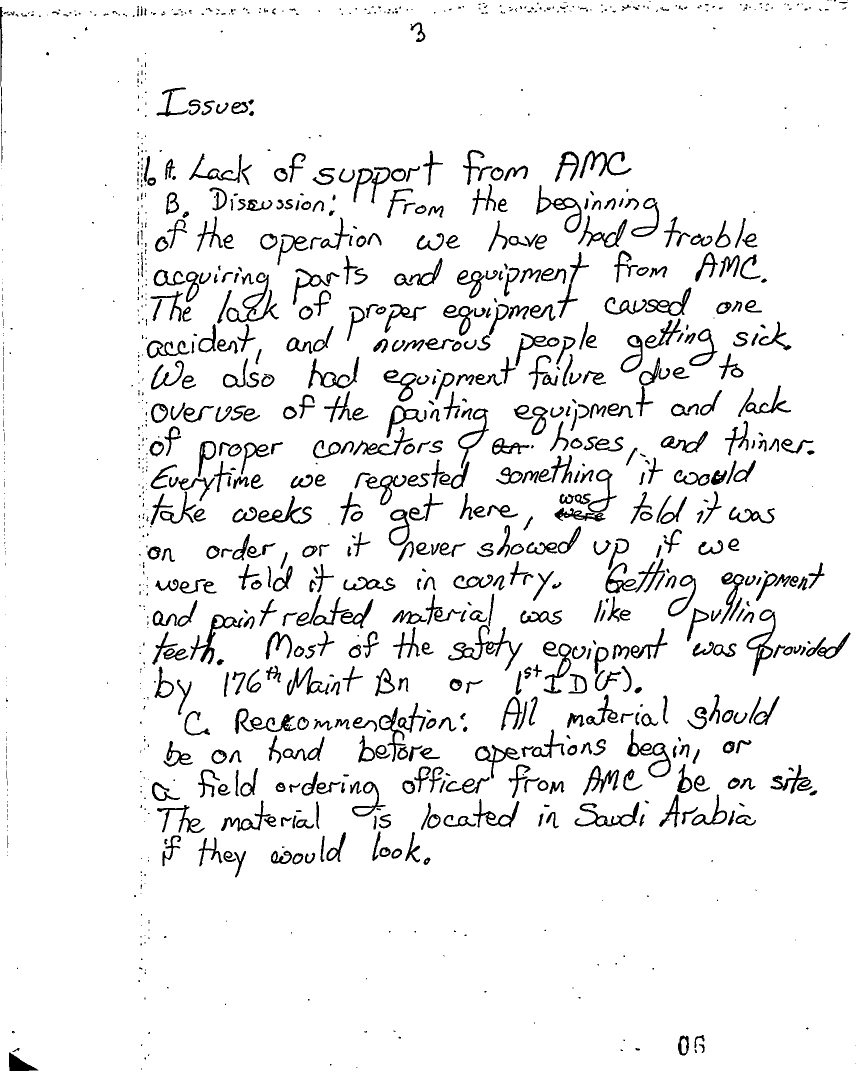 3
Issues:
1. A. Lack of support from AMC
B. Discussion: From the beginning
of the operation we have had trouble
acquiring parts and equipment from AMC.
The lack of proper equipment caused one
accident, and numerous people getting sick.
We also had equipment failure due to
overuse of the painting equipment and lack
of proper connectors, hoses, and thinner.
Everytime we requested something it would
take weeks to get here, was told it was
on order, or it never showed up if we
were told it was in country. Getting equipment
and paint related material was like pulling
teeth. Most of the safety equipment was provided
by 176th Maint Bn or 1st ID(F).
C. Reccommendation: All material should
be on hand before operations begin, or
a field ordering officer from AMC be on site.
The material is located in Saudi Arabia
if they would look.
06